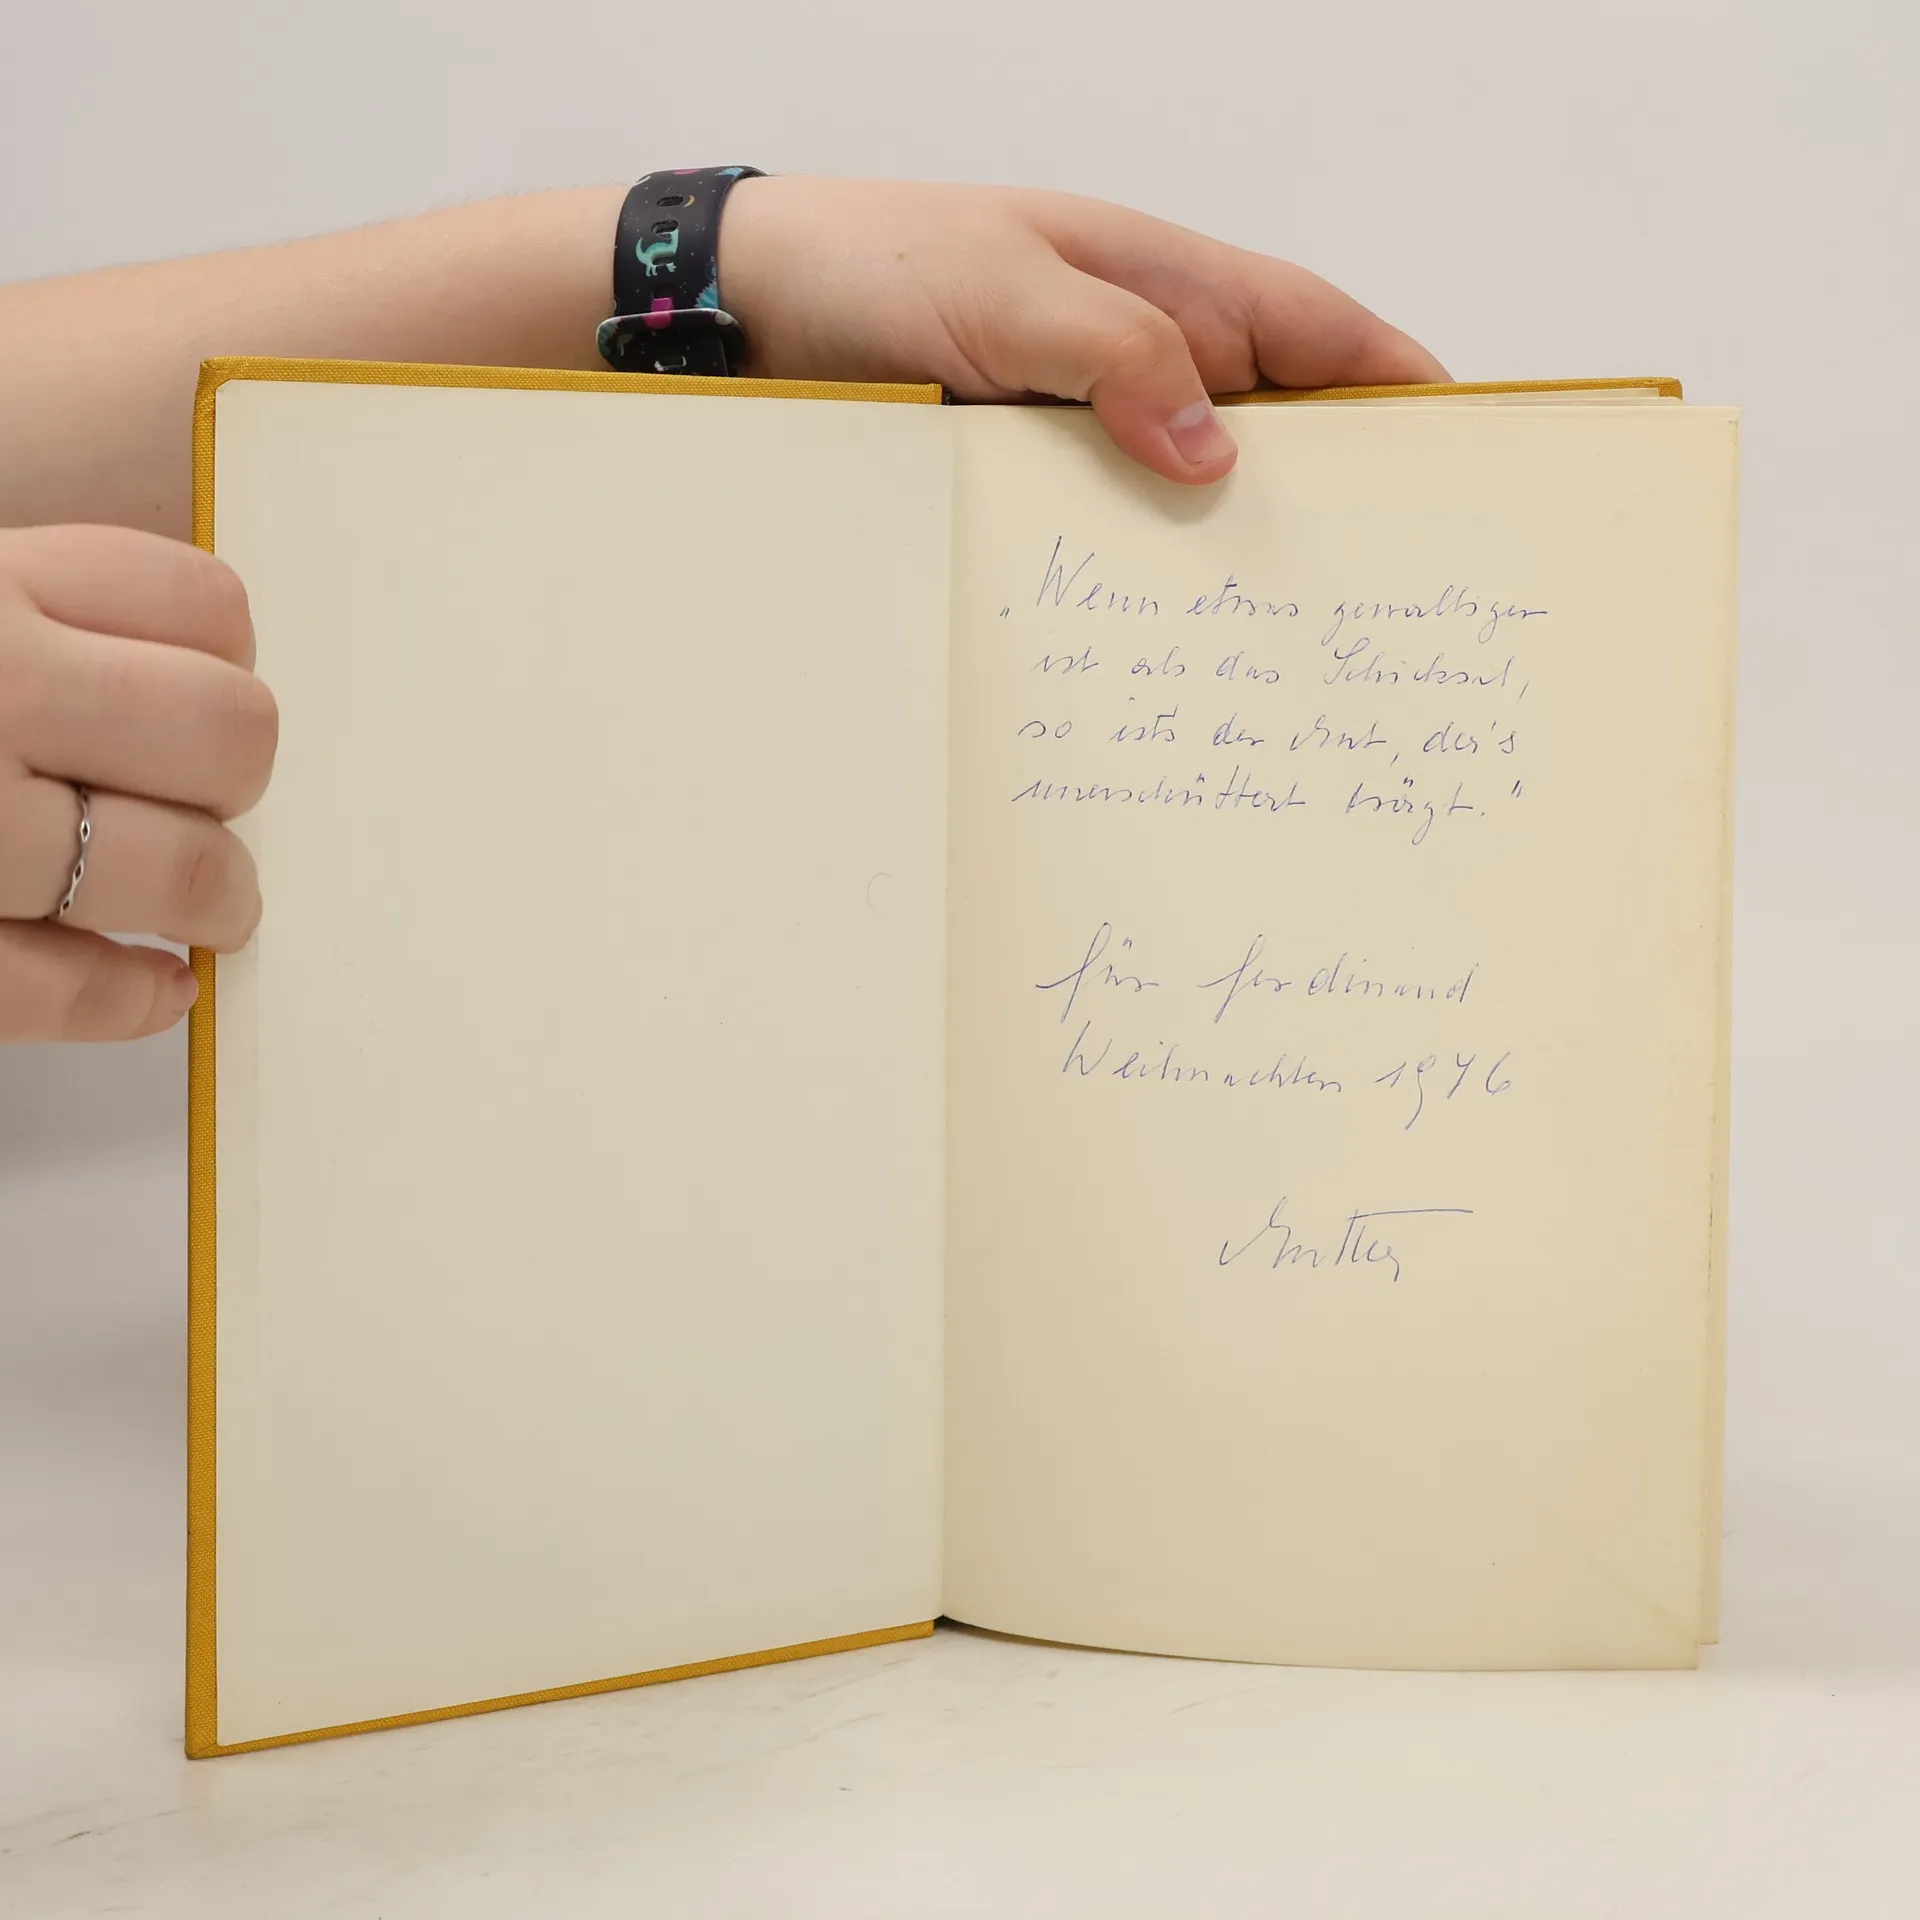 „Wenn etwas gewaltiger
ist als das Schicksal,
so ists der Mut, der's
unerschüttert trägt."
für Ferdinand
Weihnachten 1976
Mutter